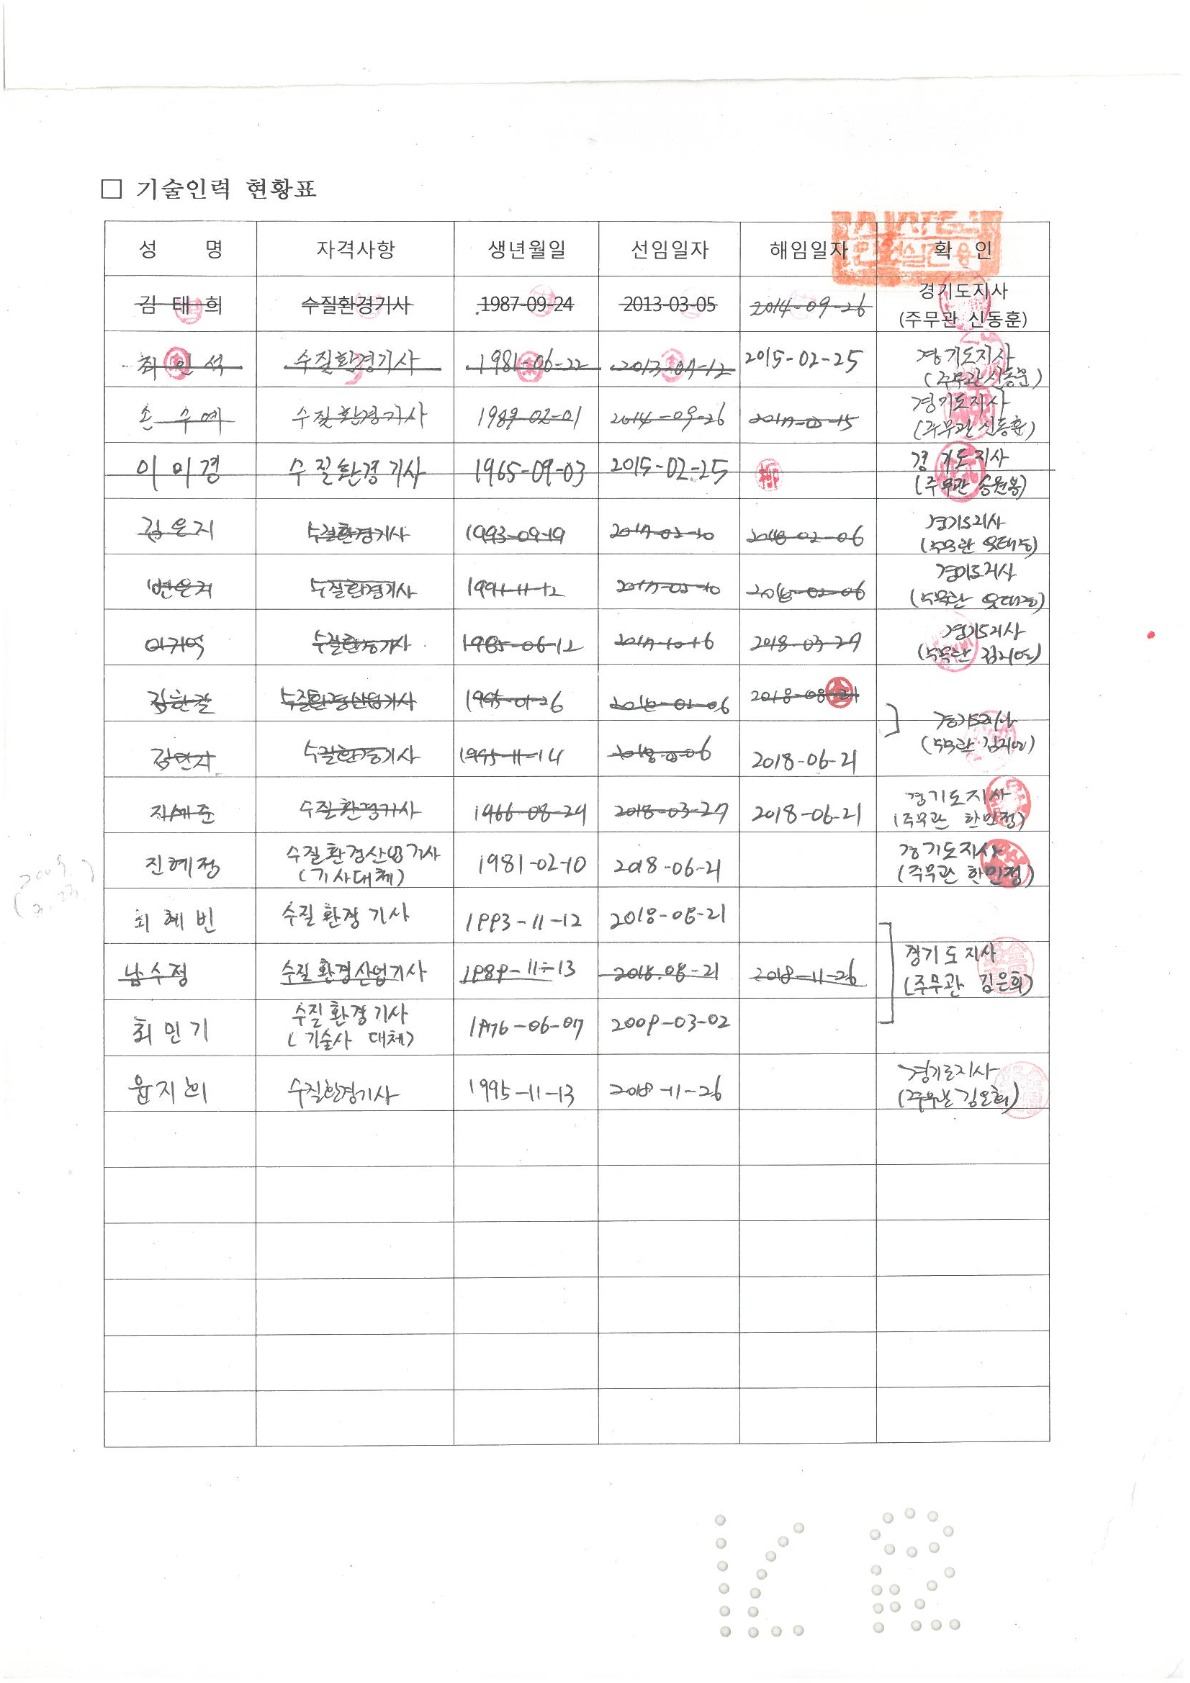 □ 기술인력 현황표
성 명 자격사항 생년월일 선임일자 해임일자 확 인
김 태 희 수질환경기사 1987-09-24 2013-03-05 2014-09-26 경기도지사
(주무관 신동훈)
최 인 석 수질환경기사 1981-06-22 2013-07-12 2015-02-25 경기도지사
(주무관 신동훈)
손 수 예 수질환경기사 1989-02-01 2014-09-26 경기도지사
(주무관 신동훈)
이 미 경 수질환경기사 1965-09-03 2015-02-25 경기도지사
(주무관 송원용)
김은지 수질환경기사 1993-09-19 2018-02-06 경기도지사
(주무관
변은지 수질환경기사 1991-11-12 2018-02-06 경기도지사
(주무관
수질환경기사 1985-06-12 2017-10-16 2018-03-27 경기도지사
(주무관 김지연)
수질환경산업기사 1995-01-26 2018-02-06 2018-08-21
경기도지사
(주무관 김지연)
수질환경기사 1995-11-14 2018-06-21
수질환경기사 1966-08-29 2018-03-27 2018-06-21 경기도지사
(주무관 한민정)
진혜정 수질환경산업기사
(기사대체) 1981-02-10 2018-06-21 경기도지사
(주무관 한민정)
최 혜 빈 수질환경기사 1993-11-12 2018-08-21
남수정 수질환경산업기사 1989-11-13 2018.08-21 2018-11-26 경기도지사
(주무관 김은희)
최 민 기 수질환경기사
(기술사 대체) 1976-06-07 2009-03-02
윤지희 수질환경기사 1995-11-13 2018-11-26 경기도지사
(주무관 김은희)